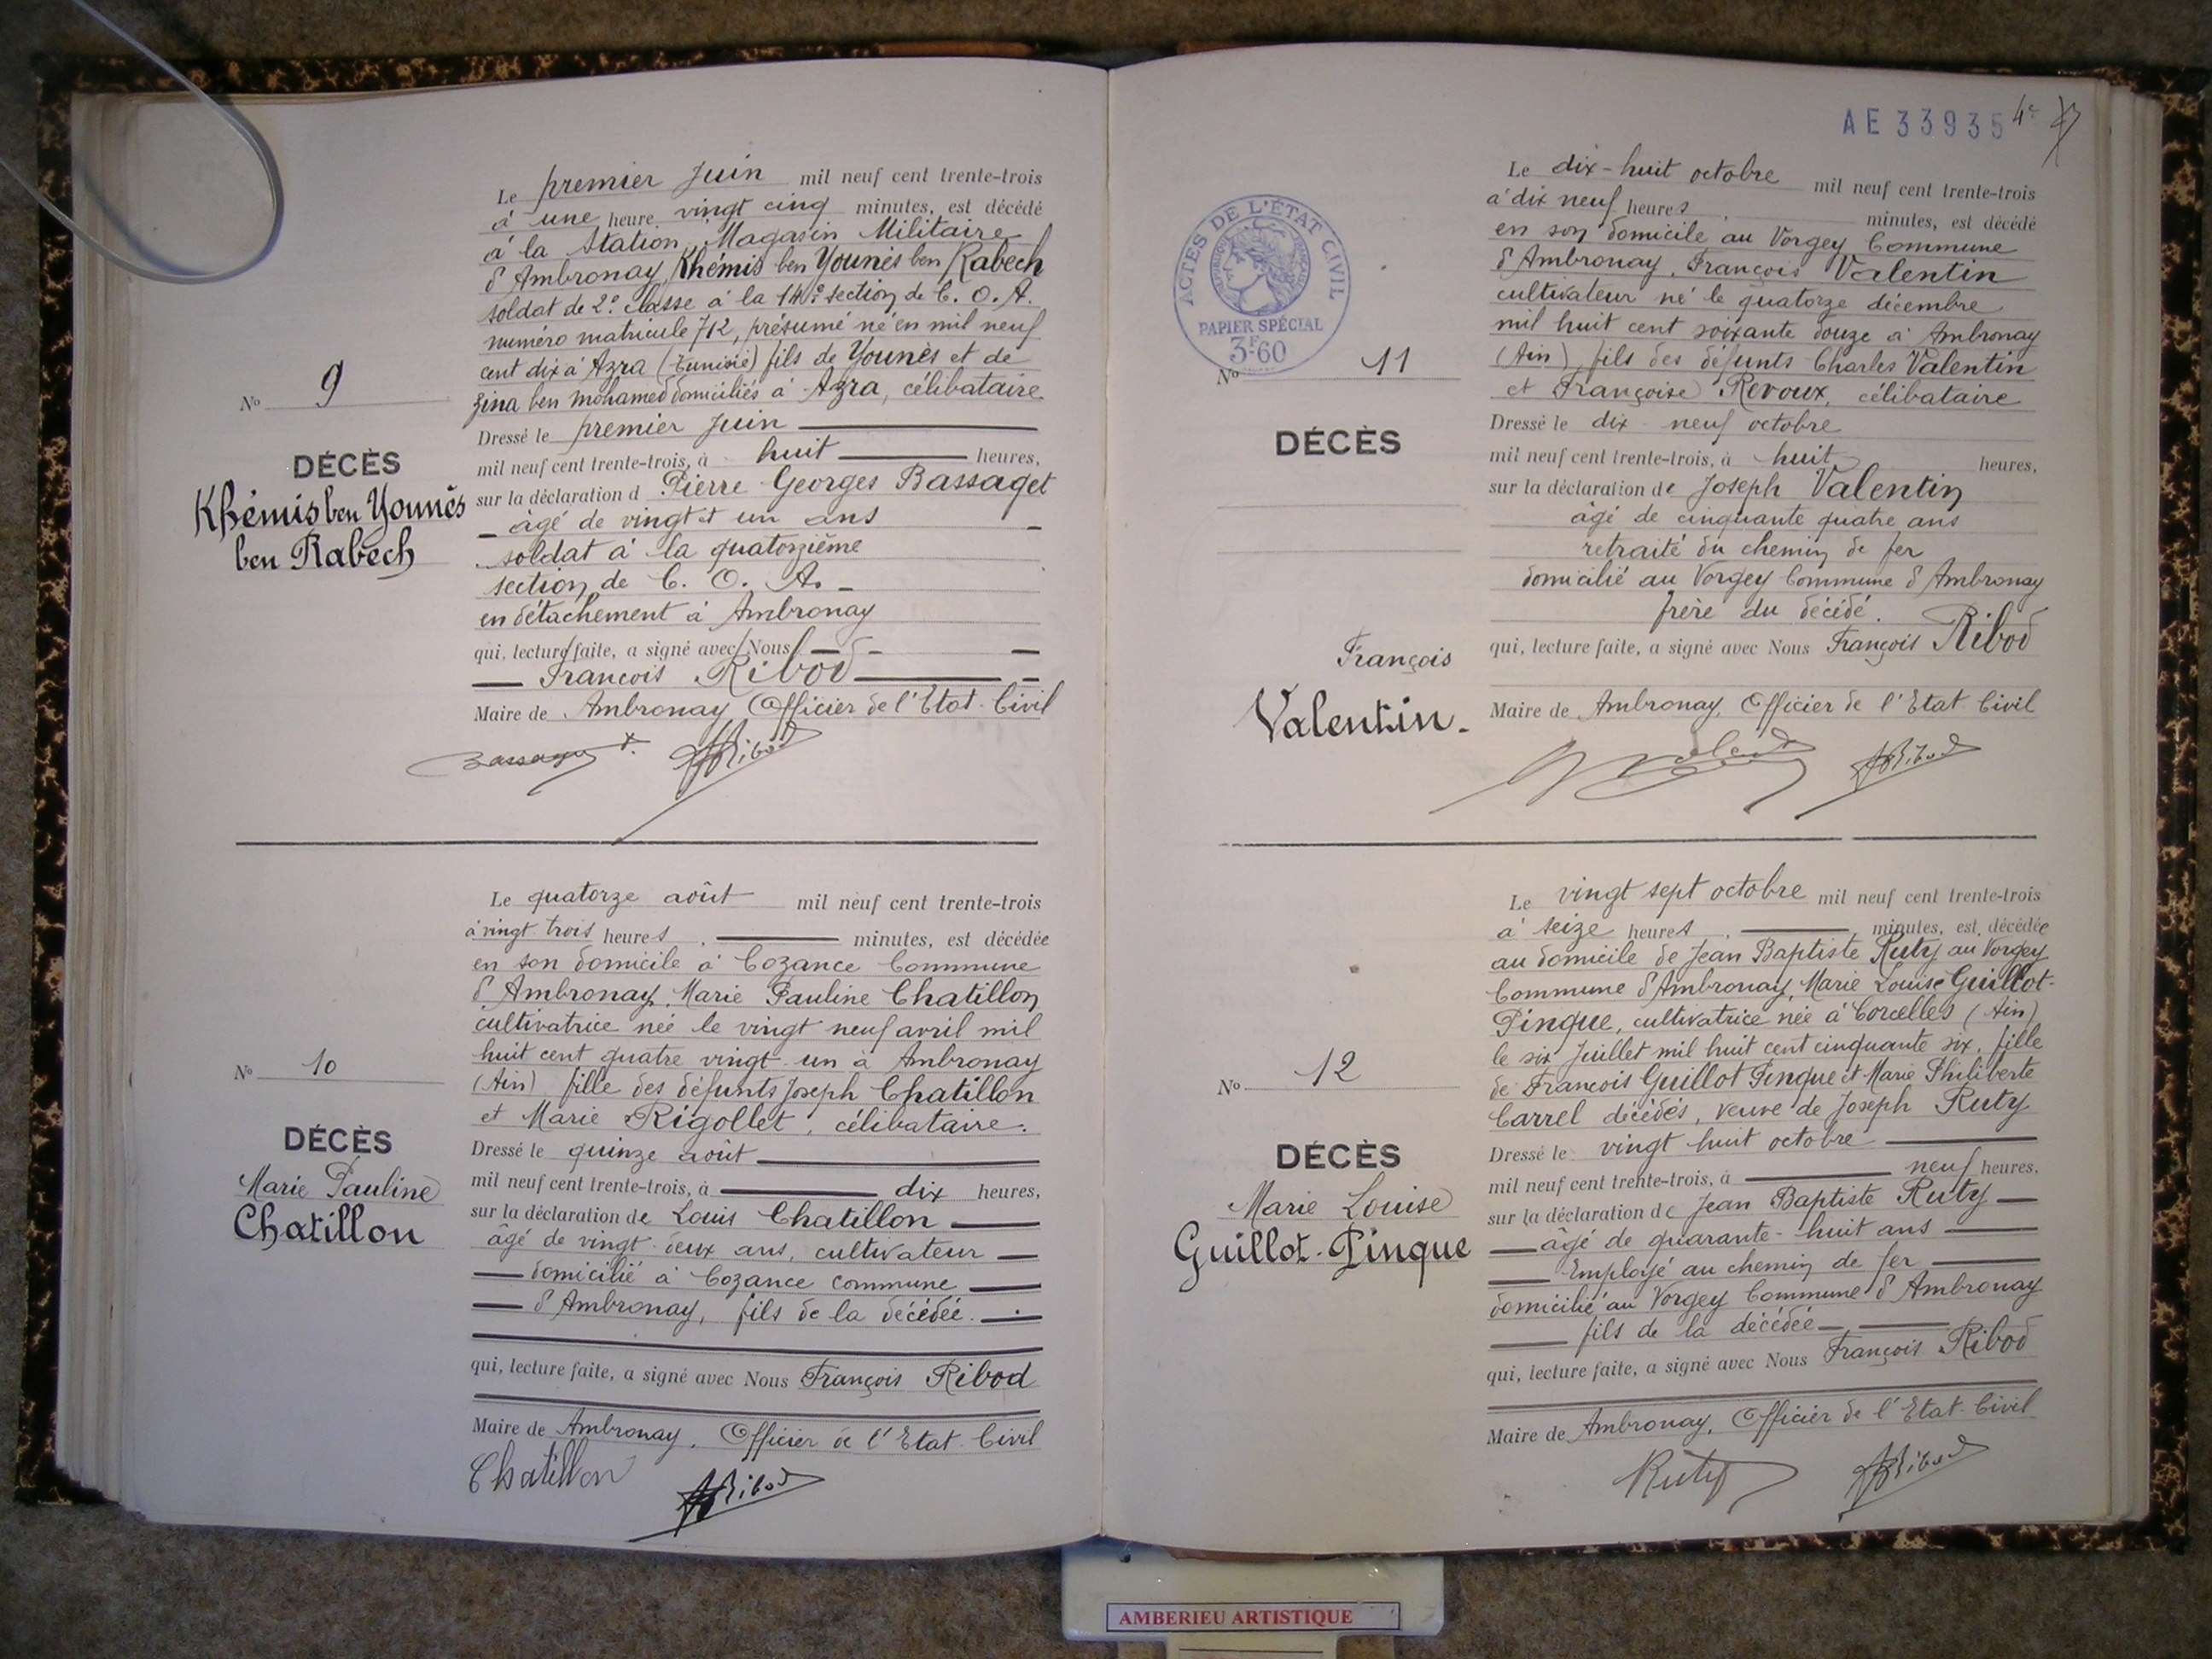 Le premier Juin mil neuf cent trente-trois
à une heure vingt cinq minutes, est décédé
à la Station Magasin Militaire
d'Ambronay, Khémis ben Younès ben Rabech
soldat de 2e classe à la 14e section de C. O. A.
numéro matricule 712, présumé né en mil neuf
cent dix à Azra (Tunisie) fils de Younès et de
Zina ben Mohamed domiciliés à Azra, célibataire
Dressé le premier Juin
mil neuf cent trente-trois, à huit heures,
sur la déclaration d Pierre Georges Bassaget
âgé de vingt et un ans
soldat à la quatorzième
section de C. O. A.
en détachement à Ambronay
qui, lecture faite, a signé avec Nous
François Ribod
Maire de Ambronay Officier de l'Etat-Civil
No 9
DÉCÈS
Khémis ben Younès
ben Rabech
Bassaget
Ribod
Le quatorze août mil neuf cent trente-trois
à vingt trois heures, minutes, est décédée
en son domicile à Cozance Commune
d'Ambronay, Marie Pauline Chatillon
cultivatrice née le vingt neuf avril mil
huit cent quatre vingt un à Ambronay
(Ain) fille des défunts Joseph Chatillon
et Marie Rigollet, célibataire.
Dressé le quinze août
mil neuf cent trente-trois, à dix heures,
sur la déclaration de Louis Chatillon
âgé de vingt deux ans, cultivateur
domicilié à Cozance commune
d'Ambronay, fils de la décédée.
qui, lecture faite, a signé avec Nous François Ribod
Maire de Ambronay, Officier de l'Etat-Civil
No 10
DÉCÈS
Marie Pauline
Chatillon
Chatillon
Ribod
AE 33935
ACTES DE L'ÉTAT CIVIL
RÉPUBLIQUE FRANÇAISE
PAPIER SPÉCIAL
3F60
Le dix-huit octobre mil neuf cent trente-trois
à dix neuf heures, minutes, est décédé
en son domicile au Vorgey Commune
d'Ambronay, François Valentin
cultivateur né le quatorze décembre
mil huit cent soixante douze à Ambronay
(Ain) fils des défunts Charles Valentin
et Françoise Revoux, célibataire
Dressé le dix-neuf octobre
mil neuf cent trente-trois, à huit heures,
sur la déclaration de Joseph Valentin
âgé de cinquante quatre ans
retraité du chemin de fer
domicilié au Vorgey Commune d'Ambronay
frère du décédé.
qui, lecture faite, a signé avec Nous François Ribod
Maire de Ambronay, Officier de l'Etat-Civil
No 11
DÉCÈS
François
Valentin.
Ribod
Le vingt sept octobre mil neuf cent trente-trois
à seize heures, minutes, est décédée
au domicile de Jean Baptiste Ruty au Vorgey
Commune d'Ambronay, Marie Louise Guillot-
Pinque, cultivatrice née à Corcelles (Ain)
le six Juillet mil huit cent cinquante six, fille
de François Guillot Pinque et Marie Philiberte
Carrel décédés, veuve de Joseph Ruty
Dressé le vingt huit octobre
mil neuf cent trente-trois, à neuf heures,
sur la déclaration de Jean Baptiste Ruty
âgé de quarante-huit ans
Employé au chemin de fer
domicilié au Vorgey Commune d'Ambronay
fils de la décédée
qui, lecture faite, a signé avec Nous François Ribod
Maire de Ambronay, Officier de l'Etat-Civil
No 12
DÉCÈS
Marie Louise
Guillot-Pinque
Ruty
Ribod
AMBERIEU ARTISTIQUE